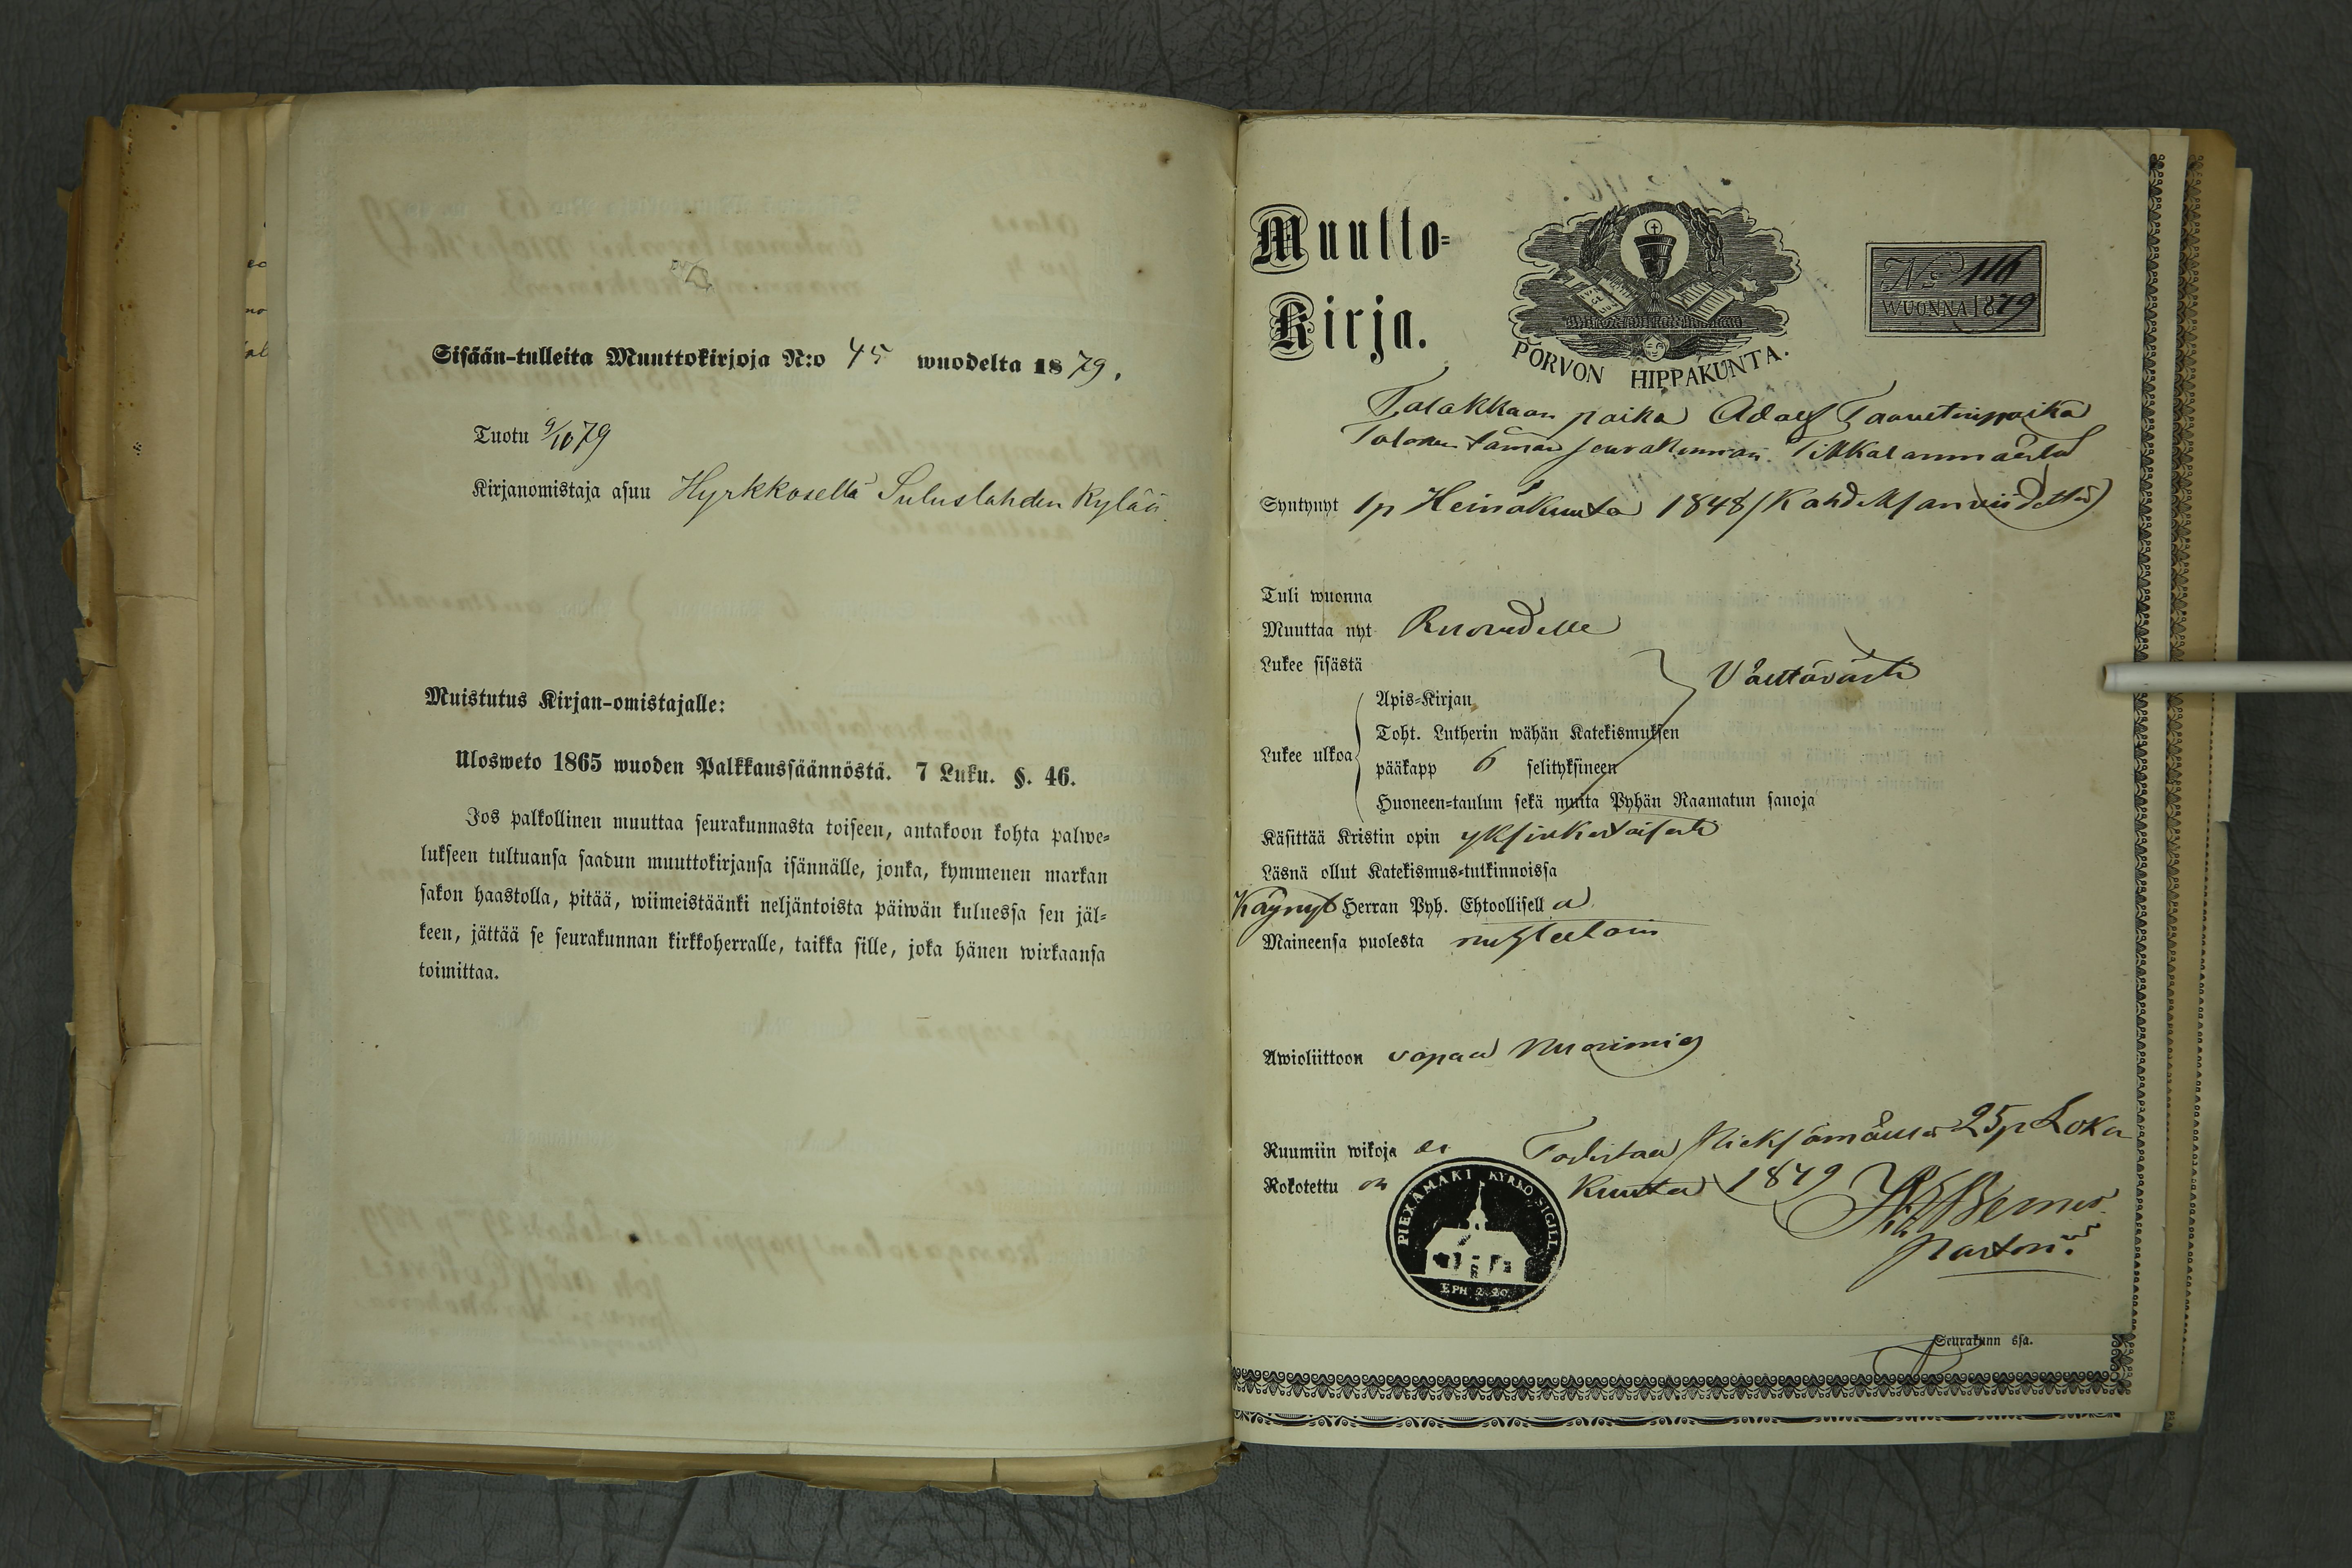 Sisään-tulleita Muuttokirjoja N:o 45 wuodelta 1879.
Tuotu 9/10 79
Kirjanomistaja asuu Hyrkkösellä Suluslahden Kylää
Muistutus Kirjan-omistajalle:
Ulosweto 1865 wuoden Palkkaussäännöstä. 7 Luku. §. 46.
Jos palkollinen muuttaa seurakunnasta toiseen, antakoon kohta palwe-
lukseen tultuansa saadun muuttokirjansa isännälle, jonka, kymmenen markan
sakon haastolla, pitää, wiimeistäänki neljäntoista päiwän kuluessa sen jäl-
keen, jättää se seurakunnan kirkkoherralle, taikka sille, joka hänen wirkaansa
toimittaa.
Muutto-
Kirja.
PORVON HIPPAKUNTA.
No 116
WUONNA 1879
Talakkaan poika Adolf Taavetinpoika
Talonen tämän seurakunnan Tikkalanmäeltä
Syntynyt 1p Heinäkuuta 1848 (Kahdeksanviidettä)
Tuli wuonna
Muuttaa nyt Ruovedelle
Lukee sisästä
Välttävästi
Lukee ulkoa
Apis-Kirjan
Toht. Lutherin wähän Katekismuksen
pääkapp 6 selityksineen
Huoneen-taulun sekä muita Pyhän Raamatun sanoja
Käsittää Kristin opin yksinkertaisesti
Läsnä ollut Katekismus-tutkinnoissa
Käynyt Herran Pyh. Ehtoollisella
Maineensa puolesta nuhteetoin
Awioliittoon vapaa nuorimies
Ruumiin wikoja ei
Rokotettu on
Todistaa Pieksämäellä 25p Loka
kuuta 1879
Pastori.
PIEXÄMÄKI KYRKO SIGILL
EPH 2.20.
Seurakunn ssa.